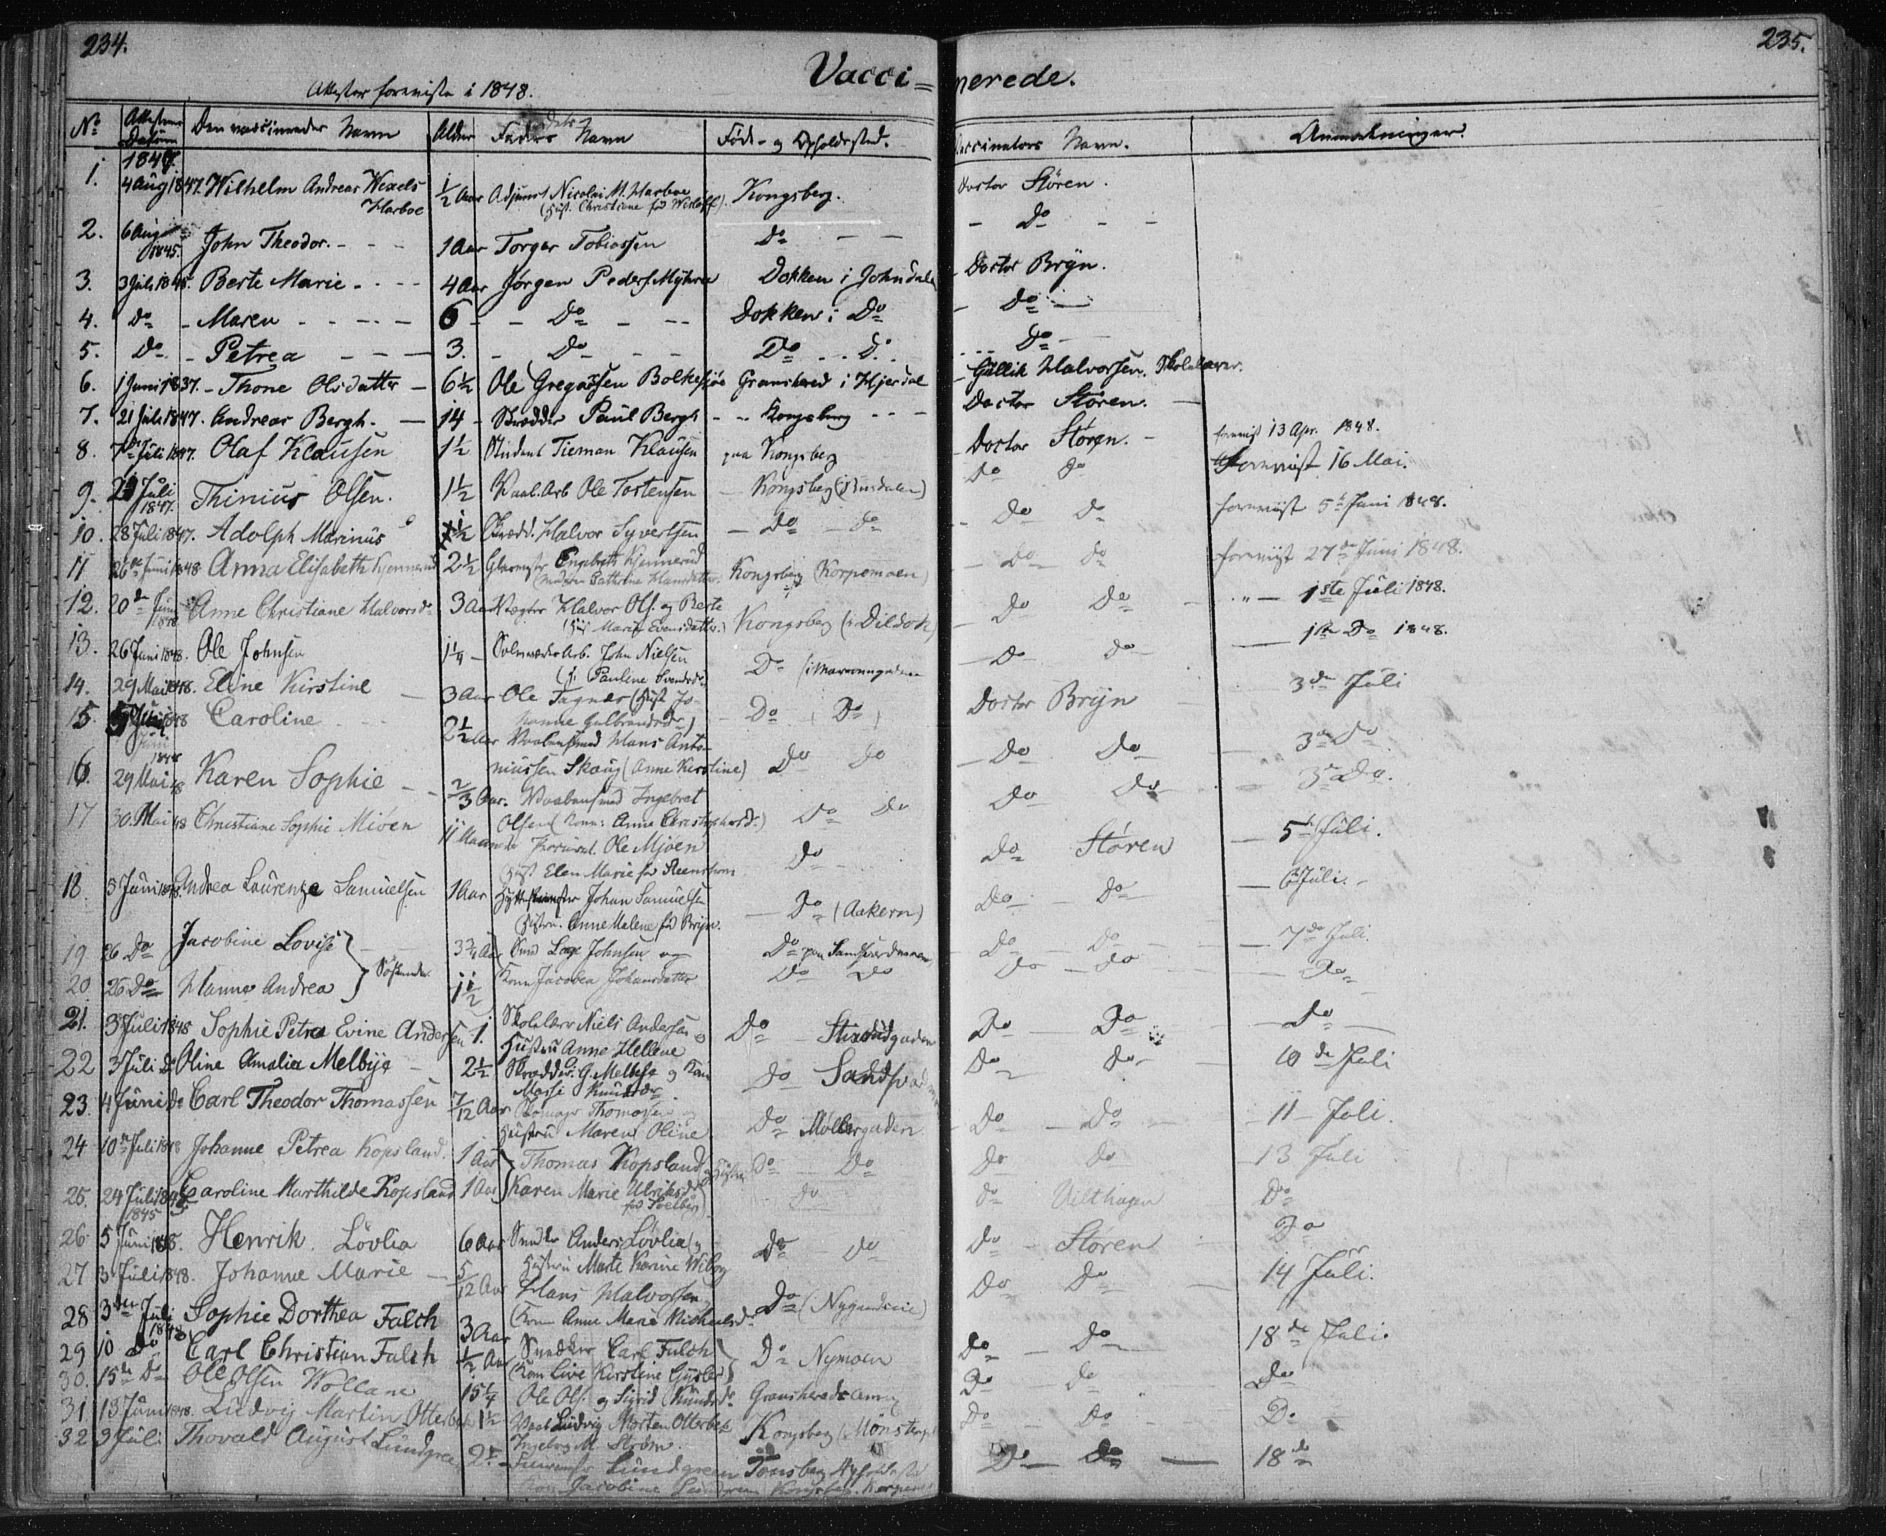 234.
235.
Vacci= nerede.
Attester foreviste i 1848.
No Attestens Datum Den vaccineredes Navn Alder Faders Navn Føde- og Opholdssted. Vaccinators Navn. Anmærkninger.
1847
1. 4 Aug 1847. Wilhelm Andreas Wexels ½ Aar Adjunct Nicolai M. Harboe Kongsberg. Doctor Støren.
Harboe (Hust. Christiane fød
2. 6 Aug 1845. John Theodor. - - - 1 Aar Torger Tobiassen Do - - - Do - -
3. 3 Juli 1848. Berte Marie - - - 4 Aar Jørgen Peders. Myhra Dokken i Johnsdalen Doctor Bryn.
4. Do - Maren - - - - 6 - - Do - - - Dokken i Do - Do -
5. Do - Petrea - - - 3. - Do - - Do - - Do - - Do -
6. 1 Juni 1837. - Thone Olsdatter - 6½ Ole Gregarssen Bolkesjøe Gransherred i Hjerdal - Gullik Halvorsen. Skolelærer.
7. 21 Juli 1847. Andreas Bergh. - 14 - Skrædder Paul Bergh - - Kongsberg - - - Doctor Støren. -
8. 7de Juli 1847. Olaf Klausen 1½ Student Tieman Klausen paa Kongsberg Doctor Støren. - forevist 13 Apr. 1848.
9. 21 Juli 1847. Thinius Olsen. 1½ Vaab. Arb Ole Tostensen - Kongsberg Do Do forevist 16 Mai.
10. 28 Juli 1847. Adolph Marinus 1½ Skrædd. Halvor Syvertsen - Do - Do - Do Do forevist 5te Juni 1848.
11 26de Juni 1848 Anna Elisabeth Hjennerud 2½ Glarmester Engebreth Hjennerud Kongsberg (Korpemoen) - Do Do forevist 27de Juni 1848.
(Moderen Cathrine Hansdatter.
12. 20de Juni 1848 Anne Christiane Halvorsdr. 3 Aar Vægter Halvor Ols. og Berte Kongsberg (i Dildok) - Do Do - „ - 1ste Juli 1848.
Marie Evensdatter.)
13. 26 Juni 1848. Ole Johnsen 1¼ - Sølvværks Arb. John Nielsen Do - Do Do - - 1ste Do 1848.
Pauline
14. 29 Mai 1848. Eline Kirstine - 3 Aar Ole Tagnæs (Hust. Jo- - Do (Do) Doctor Bryn - 3de Juli
hanne Gulbrandsdr.)
15 5 Juni 1848 Caroline - - - 2½ Aar Vaabensmed Hans Anto- Do Do - Do Do - 3de Do
niussen Skaug (Anne Kirstine)
16. 29 Mai 48 Karen Sophie - - 2/3 Aar. Vaabensmed Ingebret Do Do Do Do - 3de Do.
Olsen (Kone: Anne Christophersdr.)
17 30. Mai 48 Christiane Sophie Miøen 11 Maaneder Ole Mjøen Do - Do Støren - 5te Juli.
Hust Elen Marie fød Steenstrom
18. 3 Juni 1848. Andrea Laurenze Samuelsen 1 Aar Johan Samuelsen - Do (Aakern) Do - Do - - 6 Juli. -
Hustru. Anne Malene fød Bryn.
19 26 Do Jacobine Lovise 3¾ Aar Smed Lars Johnsen og Do paa - Do - Do - - 7de Juli.
} Søskende.
20 26 Do Hanna Andrea 1½ Kone Jacobea Johansdatter Do Do Do - Do - Do -
21. 3 Juli 1848 Sophie Petra Evine Andersen 1. Skolelærer Niels Andersen og Do - Do - Do - Do -
Hustru Anne Hellene
22 3 Juli Do Oline Amalia Melbye - 2½ Skrædder. G. Melbye og Kone Do Do Do - 10de Juli
Massi Knudsdr.
23. 4 Juni Do Carl Theodor Thomassen 7/12 Aar Skomager Thomassen og Do Møllergaden Do - Do - - 11 - Juli.
Hustru Maren Oline
24 10de Juli 1848 Johanne Petrea Kopsland. 1 Aar } Thomas Kopsland og Hustru Do - Do Do Do - 13 Juli
25. 24 Juli 1845 Caroline Marthilde Kopsland 1 Aar } Karen Marie Ulriksdr. Do Do Vilthagen Do
26 5 Juni 1848. Henrik Løvlia 6 Aar Snedker Anders Løvlia og Do - Do Do - Støren - Do
Hustru Marte Karine Wiborg
27 3 Juli 1848. Johanne Marie - 5/12 Aar Hans Halvorsen Do (Nygaderne) Do - Do - - 14 Juli.
(Kone Anne Marie Michaelsdr.
28 3die Juli 1848 Sophie Dorthea Falch 3 Aar Snedker Carl Falch } Do Nymoen Do - Do - 18de Juli.
29 10 Do Carl Christian Falch ½ Aar Kone Live Kirstine Gysler Do Do Do
30. 15de Do Ole Olsen Wollane 15¼ Ole Ols. og Sigrid Knudsdr. Gransherreds Do - Do - - Do
31 13 Juni 1848. Ludvig Martin Otterbek 1½ Vaab Ludvig Morten Otterbek Kongsberg Do - Do - 18de
Ingeborg M. Strøm.
32 3 Juli Thovald August Lundgreen 2 Lundgreen Tønsberg
Kone Jacobine Kongsberg.